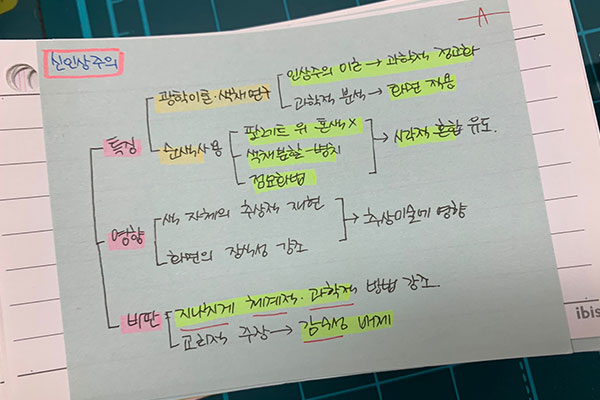 A
신인상주의
특징
광학이론·색채연구
인상주의 이론 → 과학적 정교화
과학적 분석 → 화면 적용
순색사용
팔레트 위 혼색 X
색채분할-병치
점묘화법
→ 시각적 혼합 유도.
영향
색 자체의 추상적 재현
화면의 장식성 강조
→ 추상미술에 영향
비판
지나치게 체계적·과학적 방법 강조.
교리적 주장 → 감수성 배제
ibis